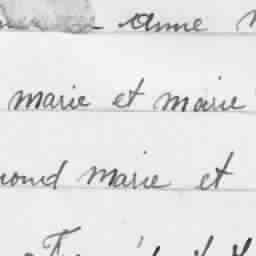 anne
marie et marie
mond marie et